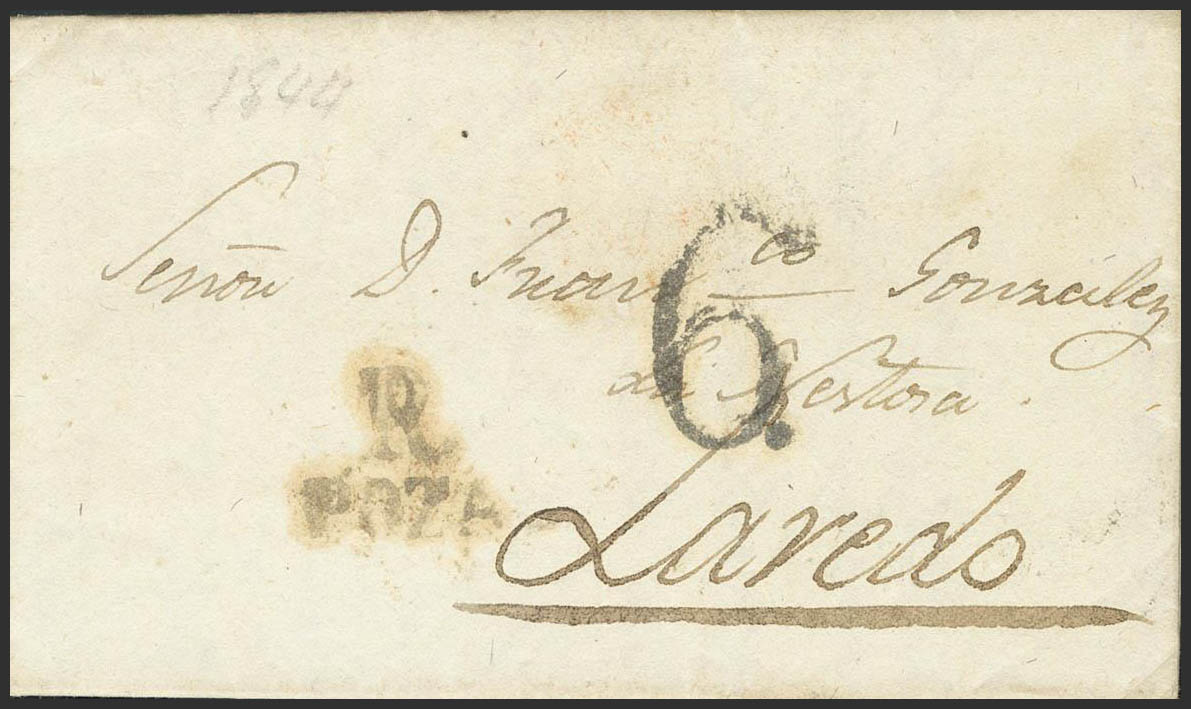 1844
Señor D. Fran^co González
de Nestosa.
6.
R.
POZA
Laredo